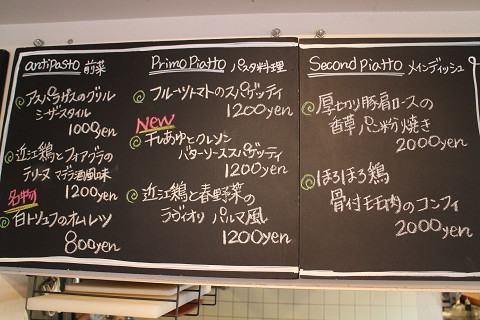 antipasto 前菜
アスパラガスのグリル
シーザスタイル
1000yen
近江鶏とフォアグラの
テリーヌ マデラ酒風味
1200yen
名物
白トリュフのオムレツ
800yen
Primo Piatto パスタ料理
フルーツトマトのスパゲッティ
1200yen
New
干しあゆとクレソン
バターソーススパゲッティ
1200yen
近江鶏と春野菜の
ラヴィオリ パルマ風
1200yen
Second Piatto メインディッシュ
厚切り豚肩ロースの
香草パン粉焼き
2000yen
ほろほろ鶏
骨付モモ肉のコンフィ
2000yen